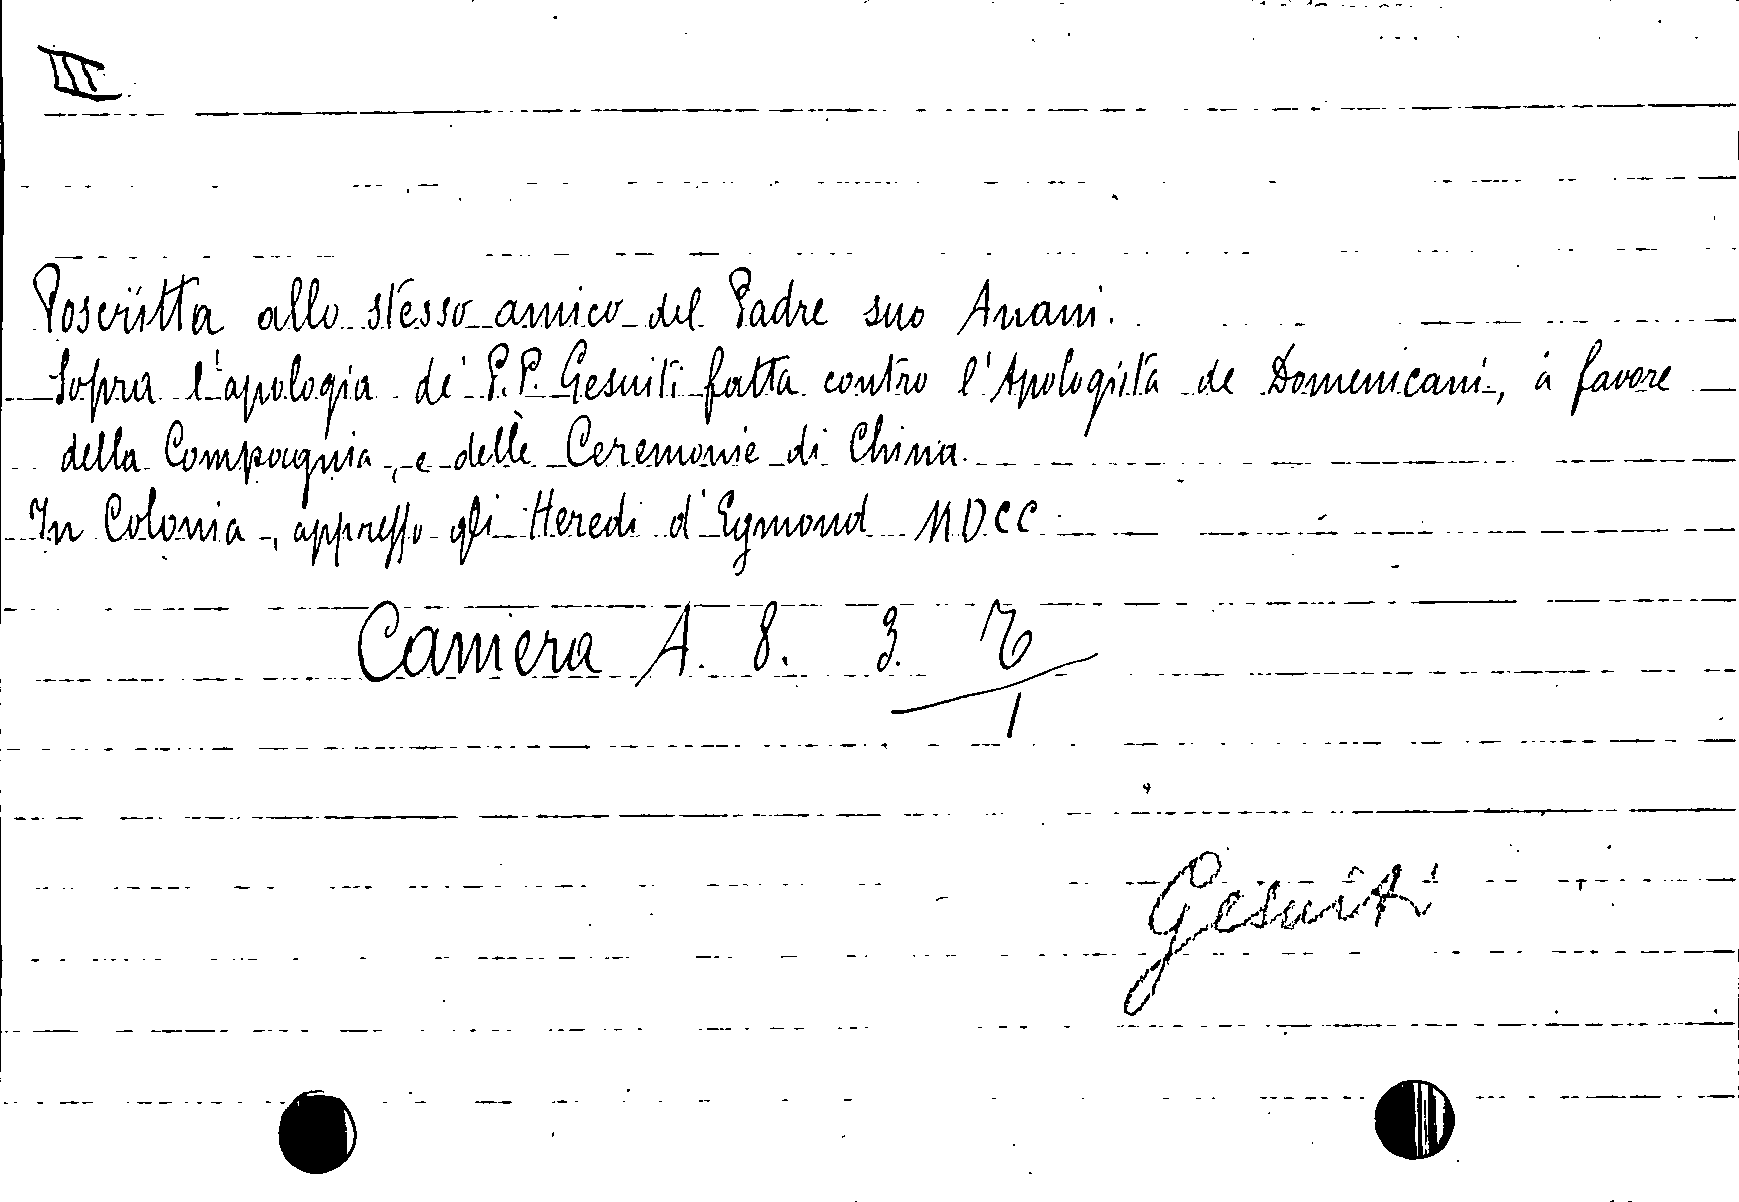 III
Poscritta allo stesso amico del Padre suo Anani.
Sopra l'apologia de' P.P. Gesuiti fatta contro l'Apologista de Domenicani, à favore
della Compagnia, e delle Ceremonie di China.
In Colonia, appresso gli Heredi d'Egmond MDCC
Camera A. 8. 3.
1
Gesuiti